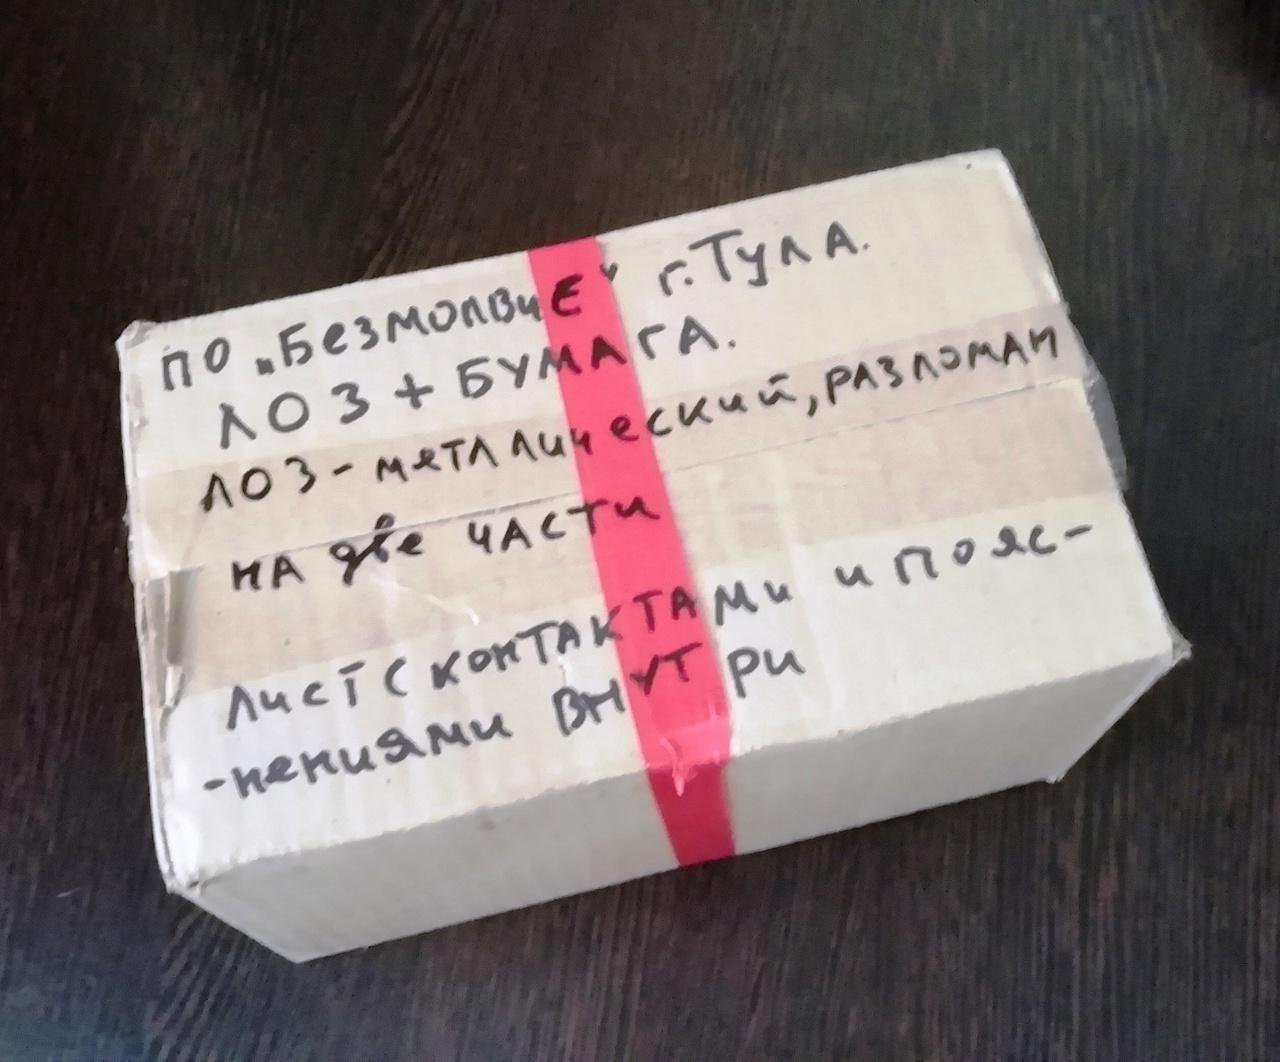 ПО „БезмолвиЕ" г. ТулА.
ЛОЗ + БУМАГА.
ЛОЗ - метлличеекий, РАЗЛОМАН
НА две ЧАсти
Лист с контАКТАМи и пояс-
-нениями ВНУТРи